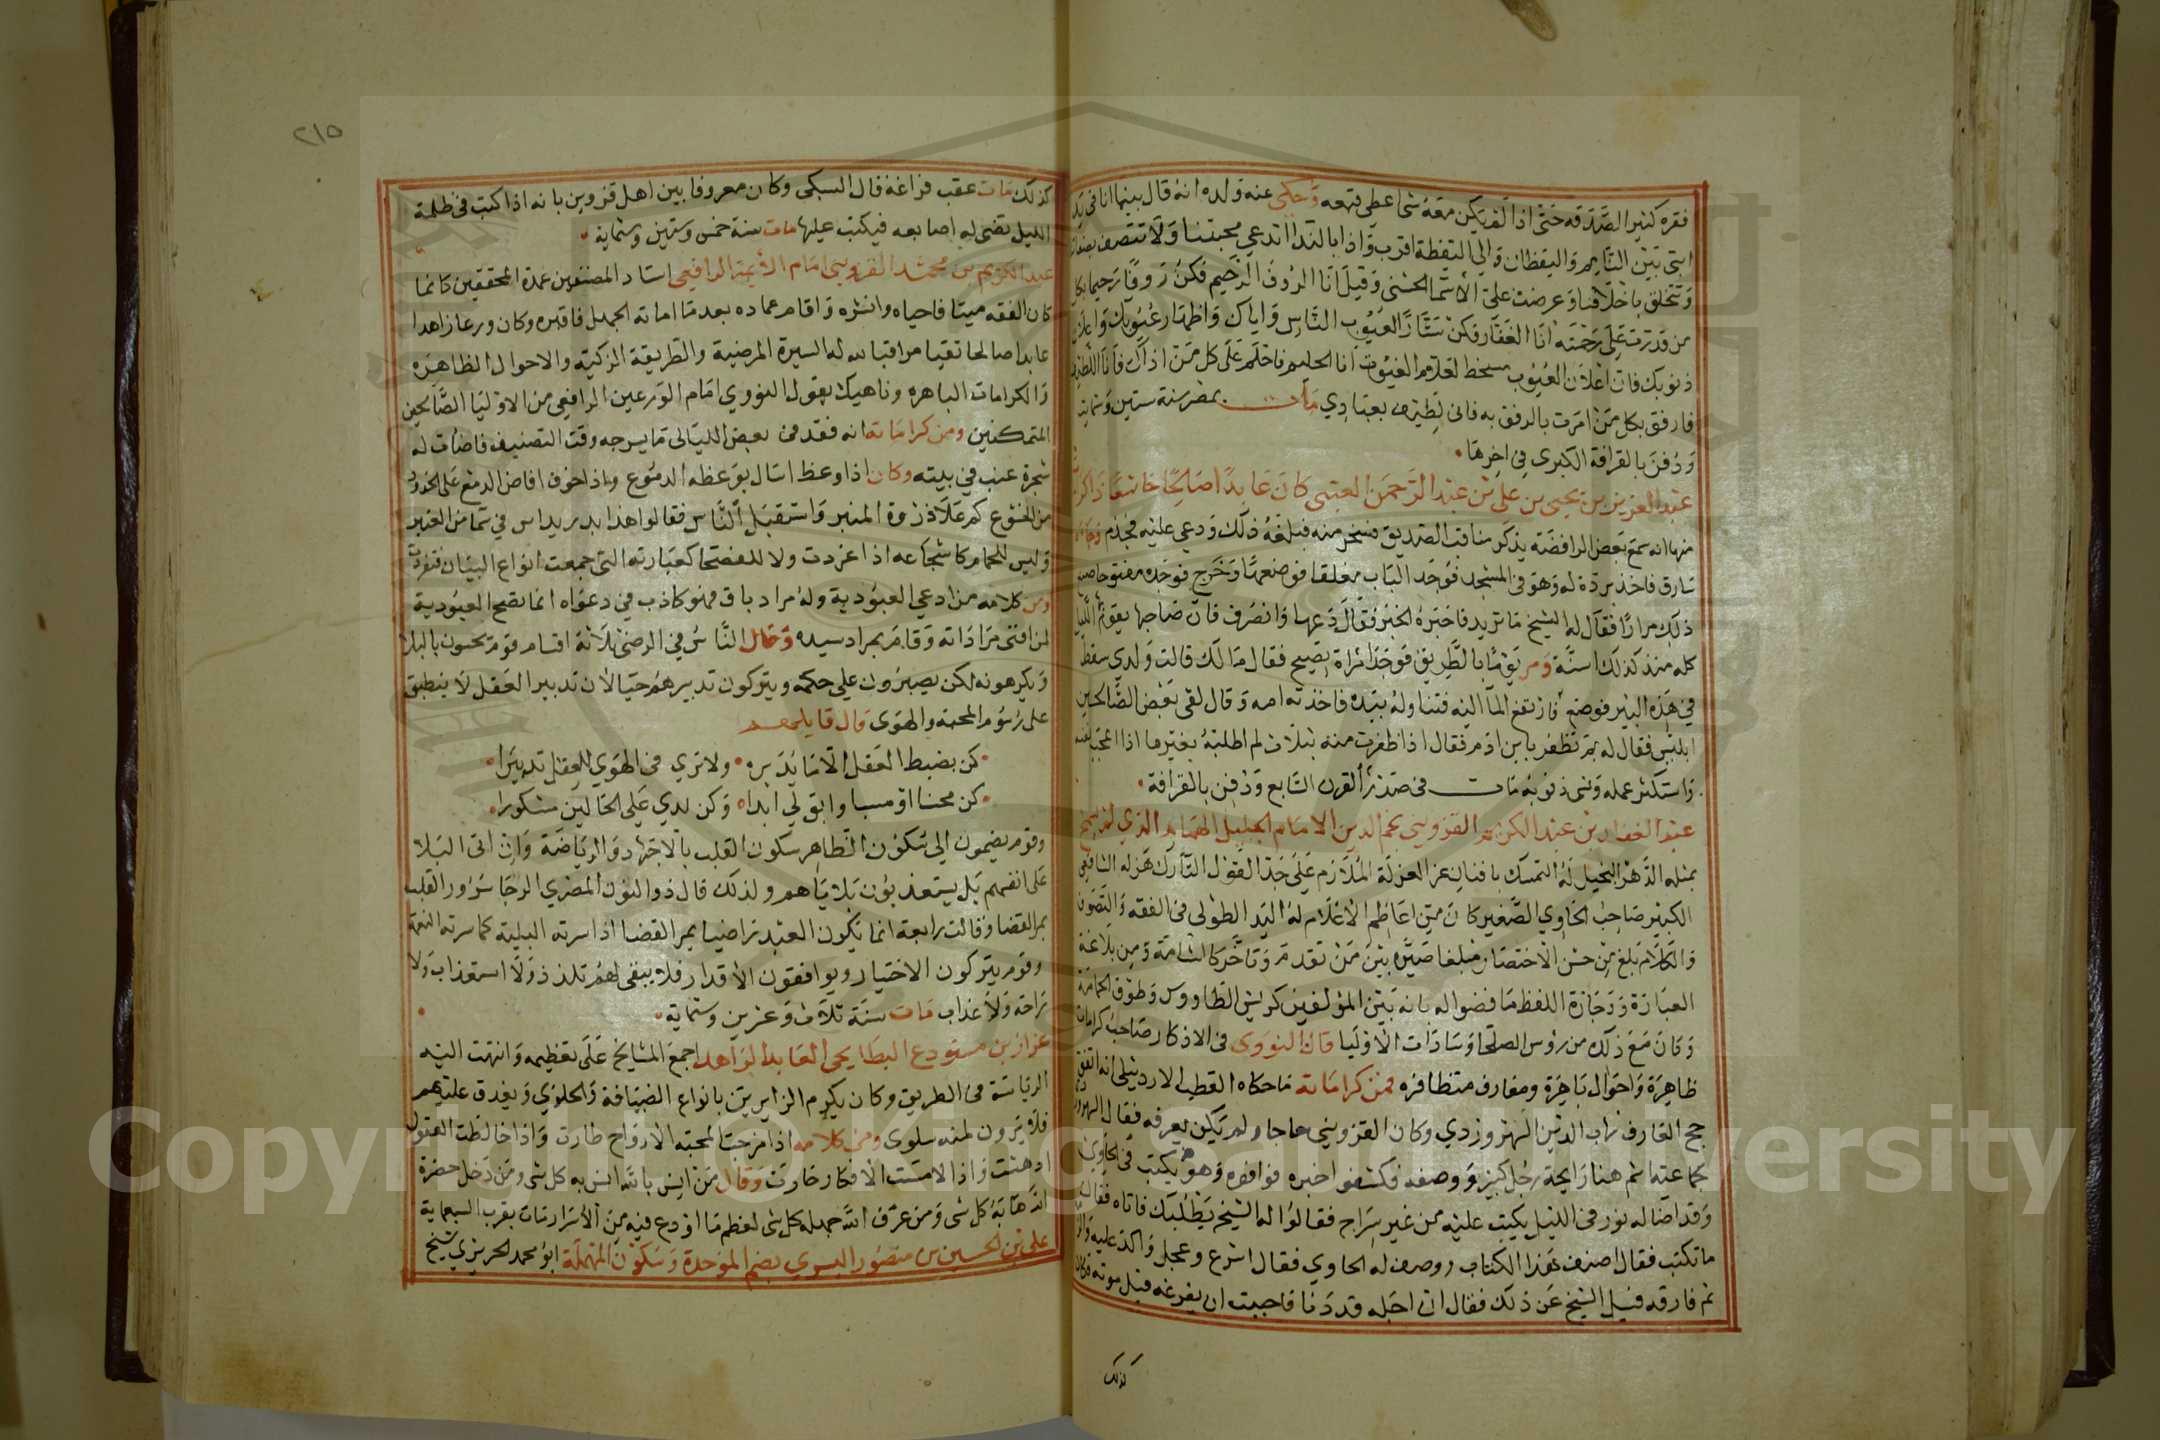 فقره كثير الصدقه حتى اذا لم يكن معه شيا عطى قبعه وحكى عنه ولده انه قال بينما انا في
ابتى بين النايم واليقظان والى اليقظة اقرب واذا بالندا اتدعي محبتنا ولا تتصف
وتتخلق باخلاقنا وعرضت علي الأسما الحسنى وقيل انا الروف الرحيم فكن روفا رحيما بكل
من قدرت على رحمته انا الغفار فكن ستارا لعيوب الناس واياك واظهار عيوبك واعلان
ذنوبك فان اعلان العيوب مسخط لعلام الغيوب انا الحليم فاحلم على كل من اذاك فانا اللطيف
فارفق بكل من امرت بالرفق به فانى لطيف بعبادي مات بمصر سنة ستين وستماية
ودفن بالقرافة الكبرى في اخرها
عبد العزيز بن يحيى بن على بن عبد الرحمن العتبى كان عابدا صالحا خاشعا
منها انه سمع بعض الرافضة يذكر مناقب الصديق فسخر منه فبلغه ذلك ودعى عليه فجذم وجاء
سارق فاخذ بردة له وهو فى المسجد فوجد الباب مغلقا فوضعها وخرج فوجده مفتوحا
ذلك مرارا فقال له الشيخ ما تريد فاخبره الخبر فقال دعها وانصرف فان صاحبها يقوم الليل
كله منذ كذلك اسنة ومر يوما بالطريق فوجد امراة تصيح فقال مالك قالت ولدي سقط
في هذه البير فوضع فارتفع الما اليه فتناوله بيده فاخذته امه وقال لقى بعض الصالحين
ابليس فقال له بم تظفر بابن ادم فقال اذا ظفرت منه بثلاث لم اطلبه بغيرها اذا اعجب بنفسه
واستكثر عمله ونسى ذنوبه مات فى صدر القرن السابع ودفن بالقرافة
عبد الغفار بن عبد الكريم القزويني نجم الدين الامام الجليل الهمام الذي لم يسمح
بمثله الدهر البخيل له التمسك بافنان عز العزلة الملازم على جد القول التارك هزله الشافعي
الكبير صاحب الحاوي الصغير كان من اعاظم الاعلام له اليد الطولى فى الفقه والتصوف
والكلام بلغ من حسن الاختصار مبلغا صيره بين من تقدم وتاخر كالشامة ومن بلاغة
العبارة ووجازة اللفظ ما قضوا له بانه بين المولفين كريش الطاووس وطوق الحمامة
وكان مع ذلك من روس الصلحا وسادات الاوليا قال النووى فى الاذكار صاحب كرامات
ظاهرة واحوال باهرة ومعارف متظافره فمن كراماته ما حكاه القطب الاردبيلى انه اتفق
حج العارف شهاب الدين السهروردي وكان القزويني حاجا ولم يكن يعرفه فقال السهروردى
لجماعته اشم هنا رايحة رجل كبير ووصفه فكشفوا خبره فوافوه وهو يكتب فى الحاوى
وقد اضا له نور فى الليل يكتب عليه من غير سراج فقالوا له الشيخ يطلبك فاتاه فقال
ما تكتب فقال اصنف هذا الكتاب ووصف له الحاوي فقال اسرع وعجل واكد عليه
ثم فارقه فقيل الشيخ عن ذلك فقال ان اجله قد دنا فاحببت ان يفرغه قبل موته فكان
كذلك
٢١٥
كذلك مات عقب فراغه قال السبكى وكان معروفا بين اهل قزوين بانه اذا كتب فى ظلمة
الليل تضى له اصابعه فيكتب عليها مات سنة خمس وستين وستماية
عبد الكريم بن محمد القزويني امام الأيمة الرافعي استاد المصنفين عمدة المحققين كانما
كان الفقه ميتا فاحياه وانشره واقام عماده بعد ما اماته الجهل فاقبره وكان ورعا زاهدا
عابدا صالحا تقيا مراقبا لله له السيرة المرضية والطريقة الزكية والاحوال الظاهره
والكرامات الباهره وناهيك بقول النووي امام الورعين الرافعي من الاوليا الصالحين
المتمكنين ومن كراماته انه فقد في بعض الليالى ما يسرجه وقت التصنيف فاضات له
شجرة عنب في بيته وكان اذا وعظ اسال بوعظه الدموع واذا خوف افاض الدمع على الخدود
من الخشوع كم علا ذروة المنبر واستقبل الناس فقالوا هذا بدر يداس في سما من العنبر
وليس للحمام كاشجاعه اذا غردت ولا للفصحا كعبارته التى جمعت انواع البيان فتفردت
ومن كلامه من ادعي العبودية وله مراد باق فهو كاذب في دعواه انما تصح العبودية
لمن افنى مراداته وقام بمراد سيده وقال الناس في الرضى ثلاثة اقسام قوم يحسون بالبلا
ويكرهونه لكن يصبرون على حكمه ويتركون تدبيرهم حيا لان تدبير العقل لا ينطبق
على رسوم المحبة والهوى قال قايلهم
كن بضبط العقل الا ما يدبره ولا ترى فى الهوي للعقل تدبيرا
كن محسنا او مسيا وابق لي ابدا وكن لدي على الحالين مشكورا
وقوم يضمون الى سكون الظاهر سكون القلب بالاجتهاد والرياضة وان اتى البلا
على انفسهم بل يستعذبون بلاياهم ولذلك قال ذو النون المصري الرضا سرور القلب
بمر القضا وقالت رابعة انما يكون العبد راضيا بمر القضا اذا سرته البلية كما سرته النعمة
وقوم يتركون الاختيار ويوافقون الاقدار فلا يبقى لهم تلذذ ولا استعذاب ولا
راحة ولا عذاب مات سنة ثلاث وعشرين وستماية
عزاز بن مستودع البطايحى العابد الزاهد اجمع المشايخ على تعظيمه وانتهت اليه
الرياسة فى الطريق وكان يكرم الزايرين بانواع الضيافة والحلوي ويغدق عليهم
فلا يرون لمنه سلوى ومن كلامه اذا مزجت المحبه الارواح طارت واذا خالطت العقول
ادهشت واذا لامست الافكار حارت وقال من انس بالله انس به كل شى ومن دخل حضرة
الله هابه كل شى ومن عرف الله جهله كل شى لعظم ما اودع فيه من الأسرار مات بقرب السبعماية
على بن الحسين بن منصور البسري بضم الموحدة وسكون المهملة ابو محمد الحريري شيخ
Copyright © King Saud University